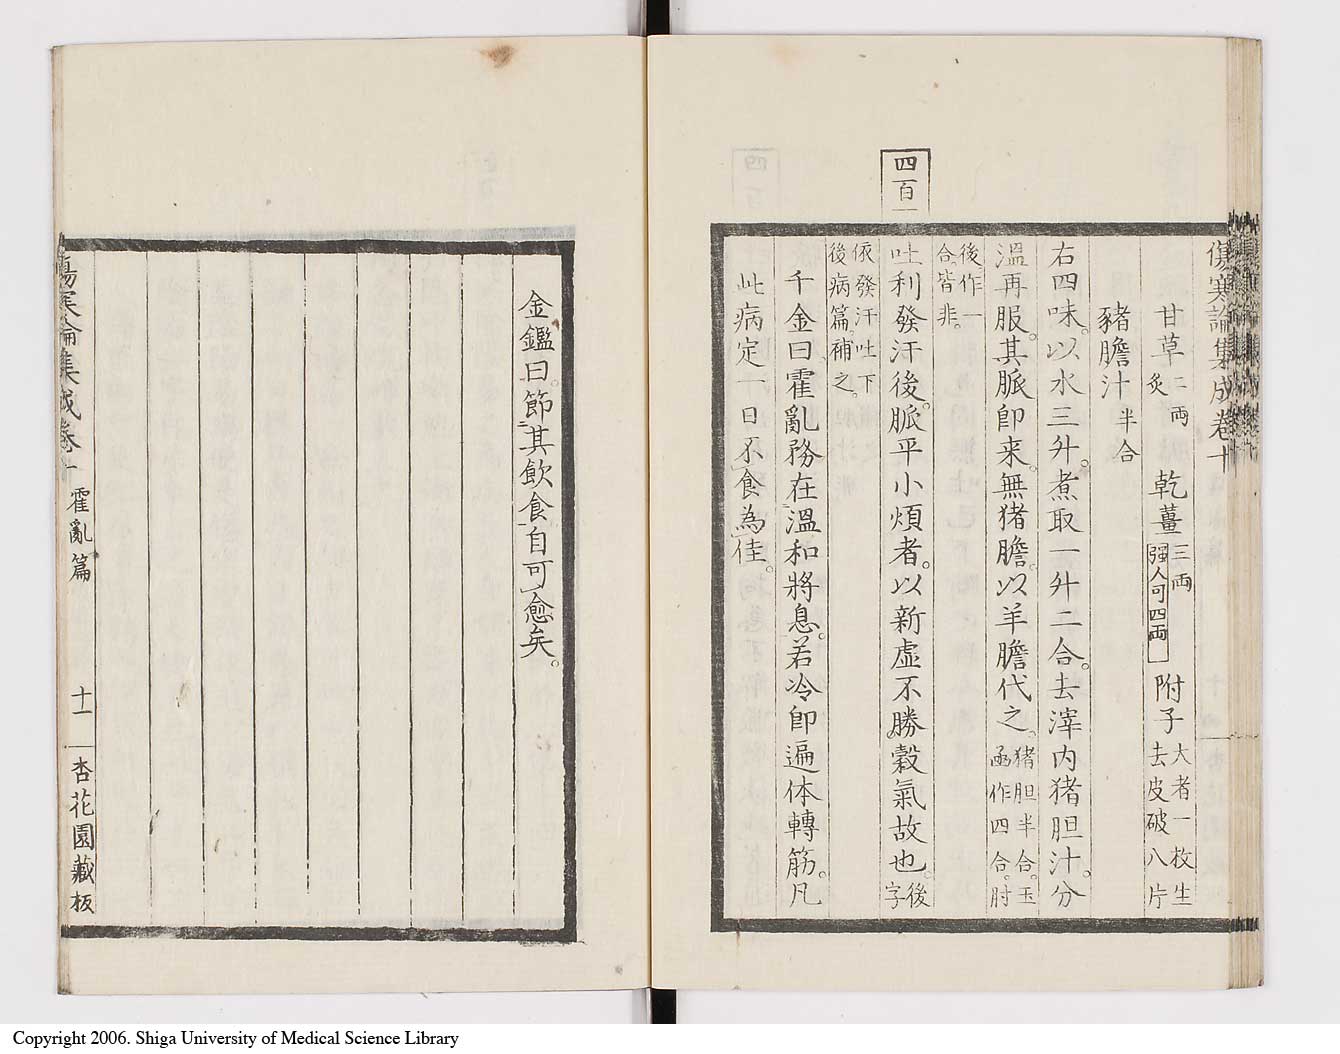 傷寒論集成卷十
甘草二両炙 乾薑三両強人可四両 附子大者一枚生去皮破八片
豬膽汁半合
右四味。以水三升。煮取一升二合。去滓内猪胆汁。分
溫再服。其脈卽来。無猪膽。以羊膽代之。猪胆半合。玉函作四合。肘
後作一合皆非。
四百一
吐利發汗後。脈平小煩者。以新虛不勝穀氣故也。後字
依發汗吐下後病篇。補之。
千金曰霍亂務在溫和將息。若冷卽遍体轉筋。凡
此病定一日不食為佳。
金鑑曰。節其飲食自可愈矣。
傷寒論集成卷十 霍亂篇 十一 杏花園藏板
Copyright 2006. Shiga University of Medical Science Library